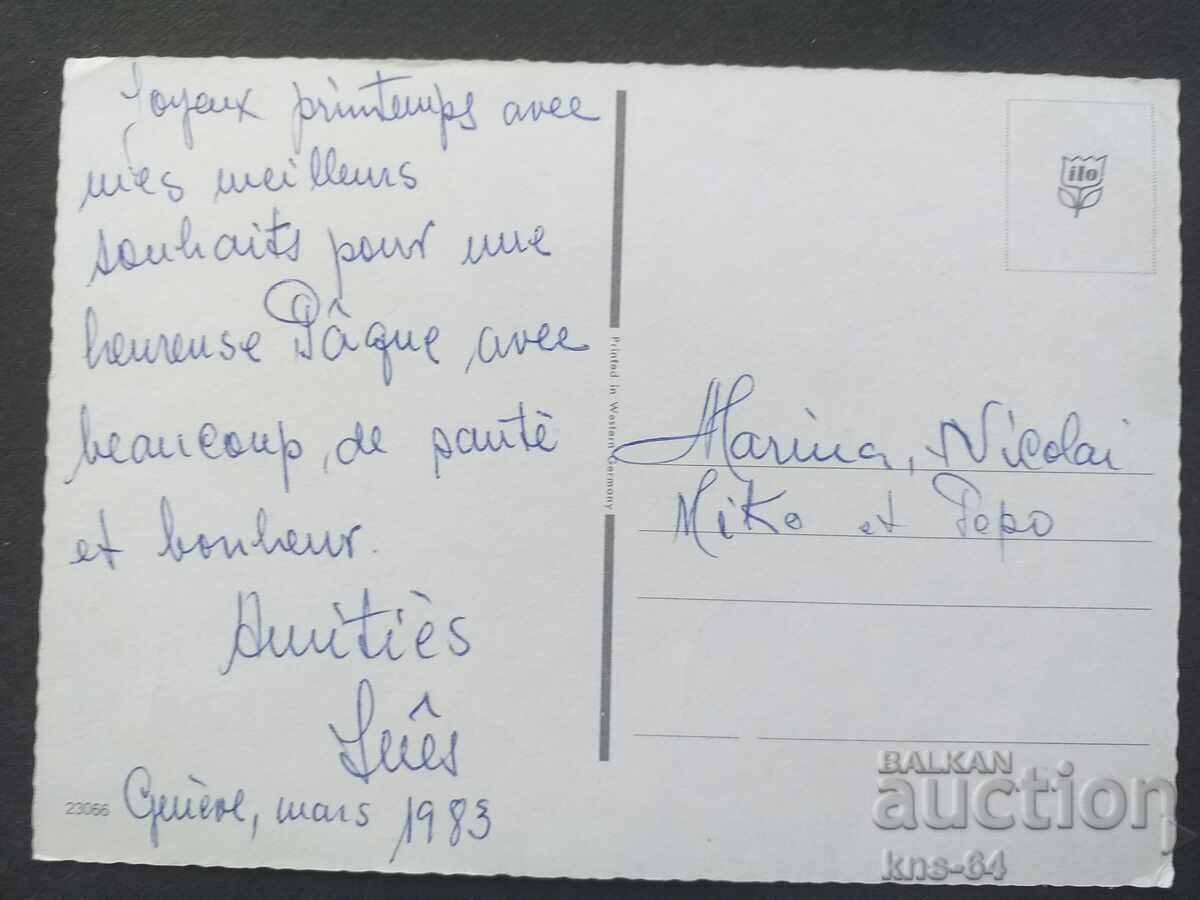 Joyeux printemps avec
mes meilleurs
souhaits pour une
heureuse Pâque avec
beaucoup de santé
et bonheur.
Amitiès
Inês
Genève, mars 1983
23066
Printed in Western Germany
ilo
Marina, Nicolai
Miko et Pepo
BALKAN
auction
kns-64